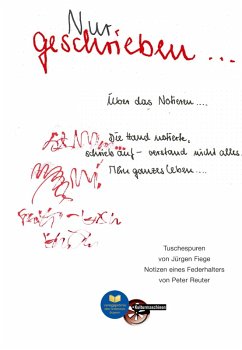 Nur
geschrieben...
Über das Notieren....
Die Hand notierte,
schrieb auf - verstand nicht alles.
Mein ganzes Leben....
Tuschespuren
von Jürgen Fiege
Notizen eines Federhalters
von Peter Reuter
Kulturmaschinen